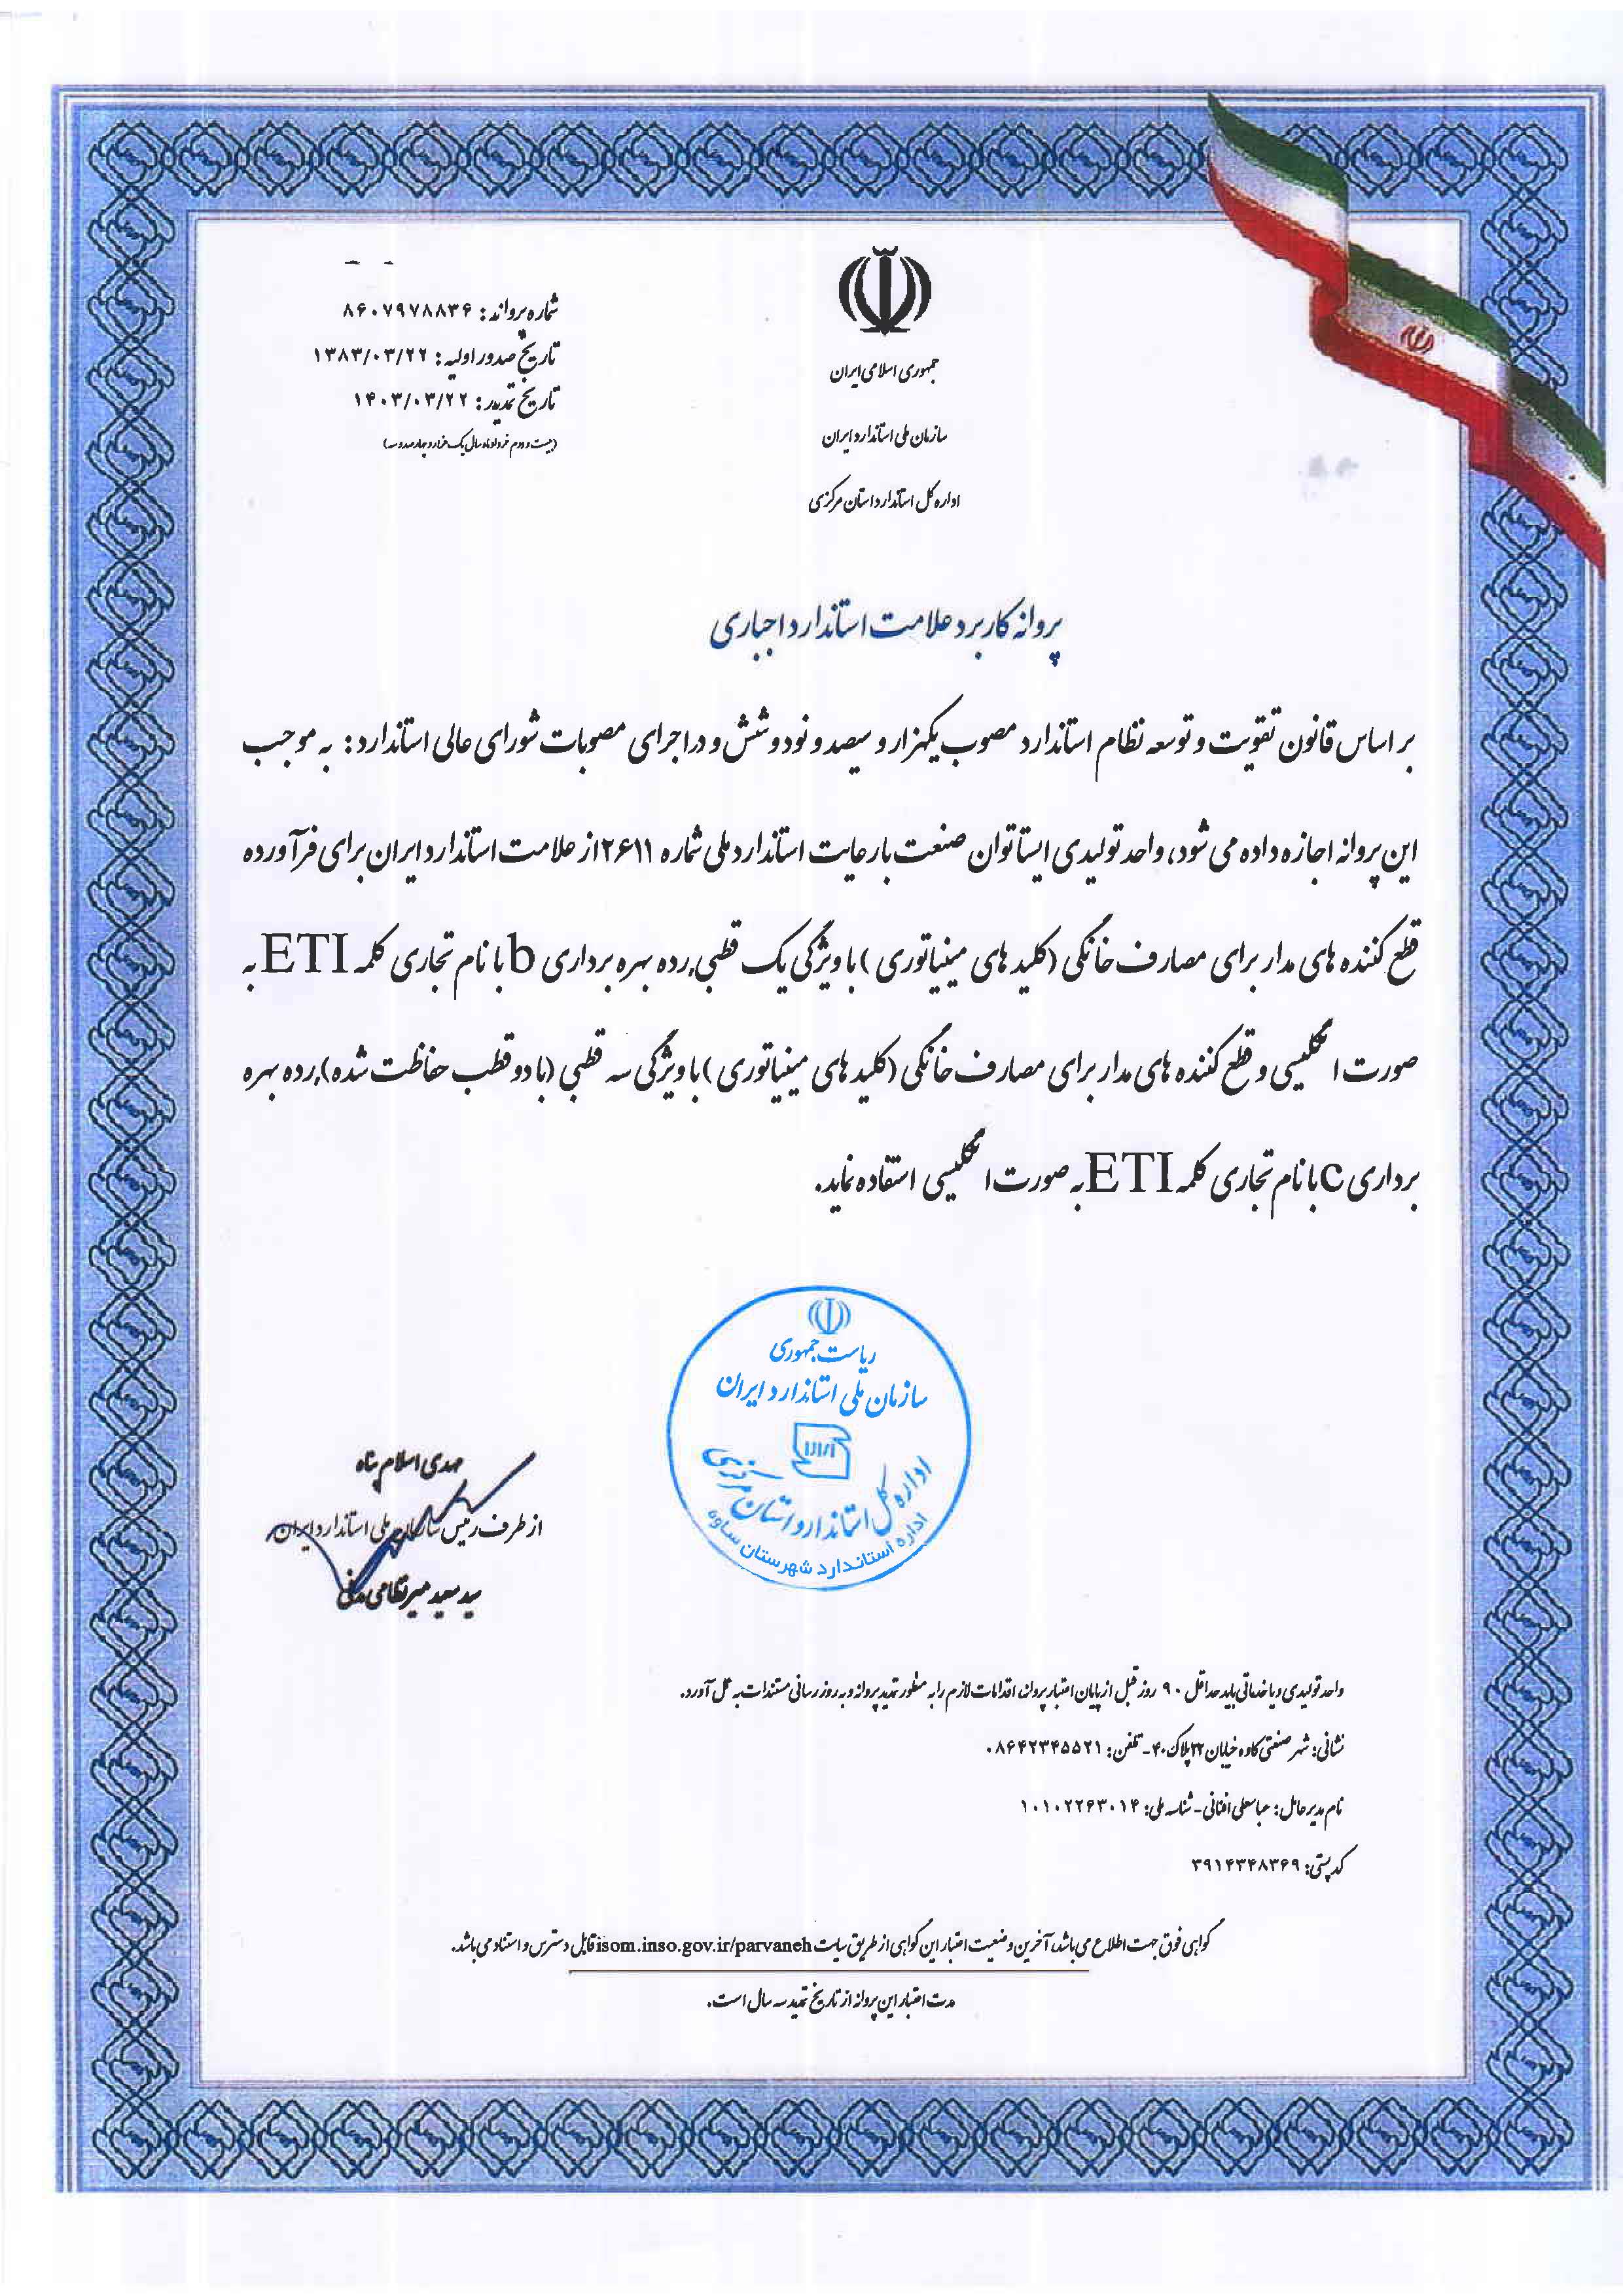 جمهوری اسلامی ایران
سازمان ملی استاندارد ایران
اداره کل استاندارد استان مرکزی
شماره پروانه: ۸۶۰۷۹۷۸۸۳۶
تاریخ صدور اولیه: ۱۳۸۳/۰۳/۲۲
تاریخ تمدید: ۱۴۰۳/۰۳/۲۲
(بیست و دوم خرداد ماه سال یک هزار و چهارصد و سه)
پروانه کاربرد علامت استاندارد اجباری
بر اساس قانون تقویت و توسعه نظام استاندارد مصوب یکهزار و سیصد و نود و شش و در اجرای مصوبات شورای عالی استاندارد: به موجب
این پروانه اجازه داده می شود، واحد تولیدی ایستا توان صنعت با رعایت استاندارد ملی شماره ۲۶۱۱ از علامت استاندارد ایران برای فرآورده
قطع کننده های مدار برای مصارف خانگی (کلید های مینیاتوری) با ویژگی یک قطبی,رده بهره برداری b با نام تجاری کلمه ETI به
صورت انگلیسی و قطع کننده های مدار برای مصارف خانگی (کلید های مینیاتوری) با ویژگی سه قطبی (با دو قطب حفاظت شده),رده بهره
برداری c با نام تجاری کلمه ETI به صورت انگلیسی استفاده نماید.
ریاست جمهوری
سازمان ملی استاندارد ایران
اداره کل استاندارد استان مرکزی
اداره استاندارد شهرستان ساوه
مهدی اسلام پناه
از طرف رئیس سازمان ملی استاندارد ایران
سید سعید میرنظامی
واحد تولیدی و یا خدماتی باید حداقل ۹۰ روز قبل از پایان اعتبار پروانه اقدامات لازم را به منظور تمدید پروانه و به روز رسانی مستندات به عمل آورد.
نشانی: شهر صنعتی کاوه خیابان ۲۲ پلاک ۴۰ - تلفن: ۰۸۶۴۲۳۴۵۵۲۱
نام مدیر عامل: عباسعلی افغانی - شناسه ملی: ۱۰۱۰۲۲۶۳۰۱۴
کد پستی: ۳۹۱۴۳۴۸۳۶۹
گواهی فوق جهت اطلاع می باشد، آخرین وضعیت اعتبار این گواهی از طریق سایت isom.inso.gov.ir/parvaneh قابل دسترس و استناد می باشد.
مدت اعتبار این پروانه از تاریخ تمدید سه سال است.